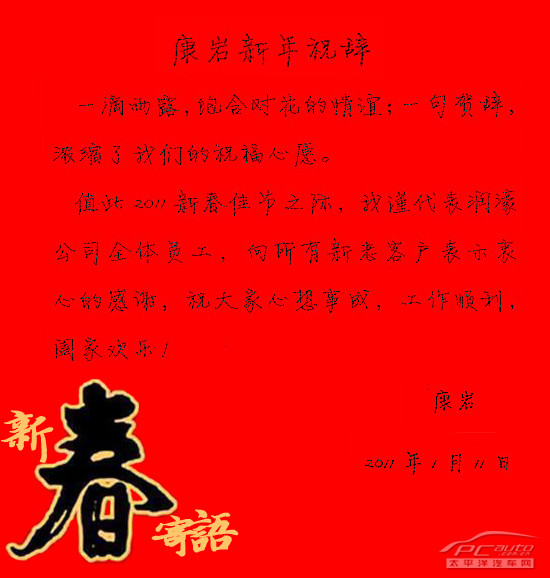 康岩新年祝辞
一滴雨露，饱含对花的情谊；一句贺辞，
浓缩了我们的祝福心愿。
值此2011新春佳节之际，我谨代表润濠
公司全体员工，向所有新老客户表示衷
心的感谢，祝大家心想事成，工作顺利，
阖家欢乐！
康岩
2011年1月11日
新
春
寄語
PCauto
.com.cn
太平洋汽车网